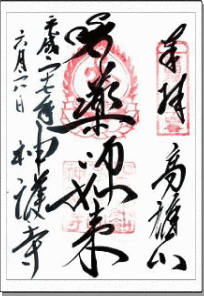 奉拝
高雄山
薬師如来
神護寺
平成二十七年
六月六日